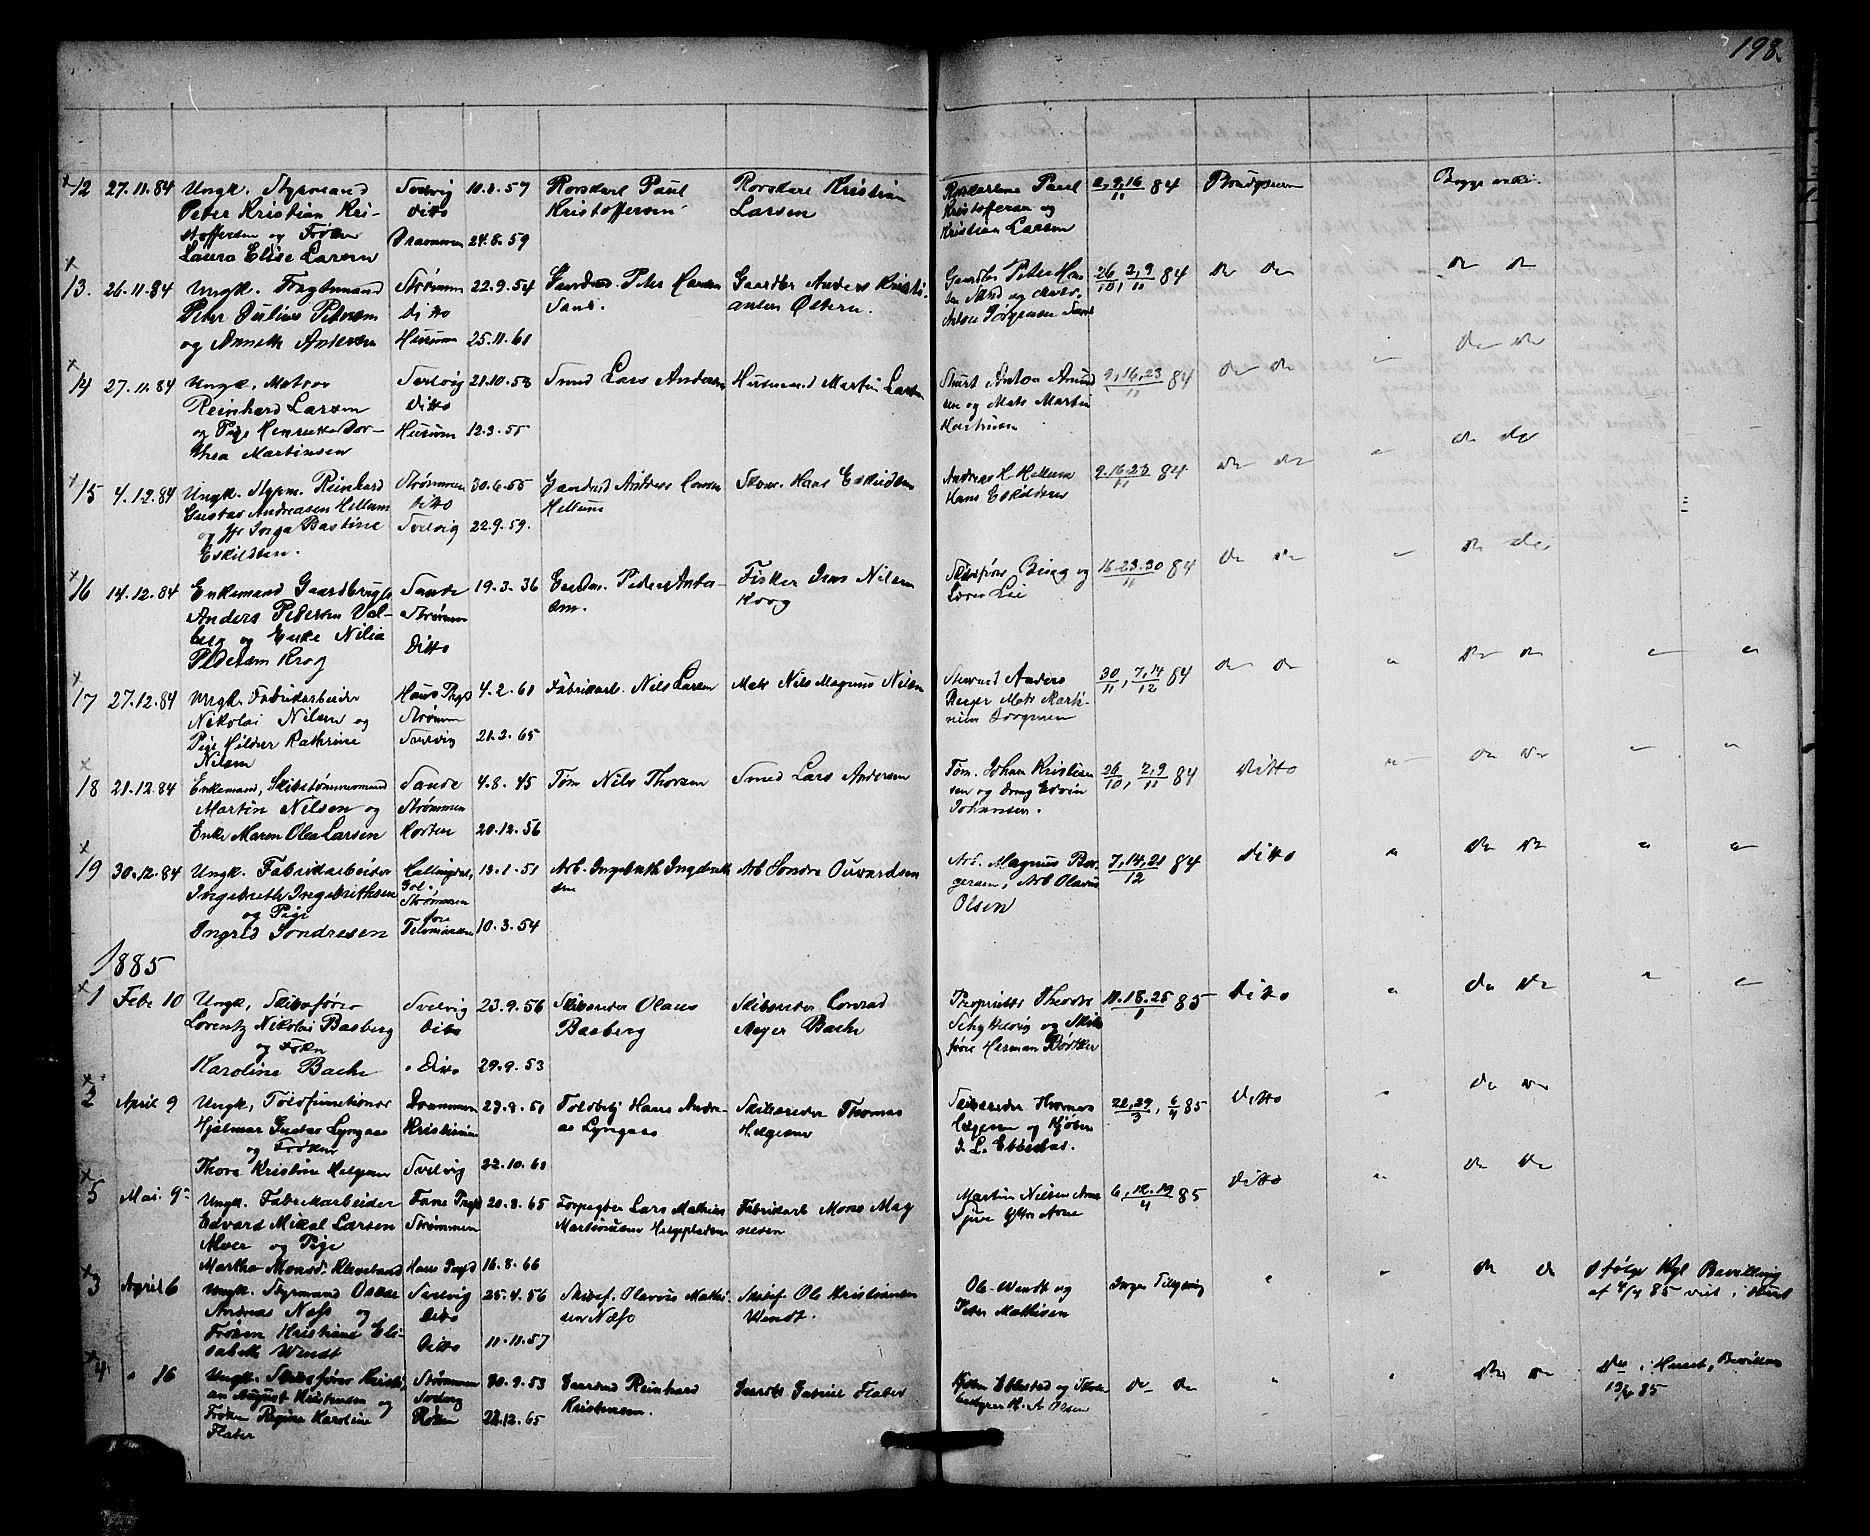 198
12 27.11.84 Ungk. Styrmand Svelvig 10.1.57 Rorskarl Paul Rorskarl Kristian Paul 2,9,16/11 84 Brudgommen Begge
Peter Kristian Kri- Ditto Kristoffersen Larsen Kristoffersen og
stoffersen og Frøken Drammen 24.8.59 Kristian Larsen
Laura Elise Larsen
13. 26.11.84 Ungk. Strømmen 22.9.54 Peter Hansen Gaardbr Anders Kristi- Peter Han 26/10, 2,9/11 84 do do do do
Peter Julius Petersen ditto Sand. ansen Østern. sen Sand og
og Anneth Andersen Hurum 25.11.60 Anton Jørgensen Sand
14 27.11.84 Ungk. Matros Svelvig 21.10.53 Smed Lars Andersen Husmand Martin Larsen Anton Amund 9,16,23/11 84 do do " do do
Reinhard Larsen Ditto sen og Mats Martin
og Pige Henriette Dor- Hurum 12.3.55
thea Martinsen
15 4.12.84 Ungk. Styrm. Reinhard Strømmen 30.6.55 Gaardmd Andreas Hansen Hans Eskildsen Andreas H. Hellum 9.16.23/11 84 do do " do do
Gustav Andreasen Hellum Ditto Hellum Hans Eskildsen
og Inga Bastine Svelvig 22.9.59.
Eskildsen.
16 14.12.84 Enkemand Gaardbruger Sande 19.3.36 Peder Fisker Jens Nilsen Skibsfører Bing og 16.23.30/11 84 do do " do do
Anders Pedersen Val- Strømmen sen. Krog Lie
berg og Enke Nilia Ditto
Pedersen Krog
17 27.12.84 Ungk. Fabrikarbeider Haus Prgd 4.2.60 Fabrikarb. Nils Larsen Mats Nils Magnus Nilsen Anders 30/11, 7,14/12 84 do do " do do " "
Nikolai Nilsen og Strømm Berger Mats Marti-
Pige Hilder Kathrine Svelvig 21.2.65 nius Jørgensen
Nilsen
18 21.12.84 Enkemand, Skibstømmermand Sande 4.8.45 Tøm Nils Thorsen Smed Lars Andersen Tøm. Johan Kristian 26/10, 2,9/11 84 Ditto " do do " "
Martin Nilsen og Strømmen sen og Edvin
Enke Maren Olea Larsen Horten 20.12.56 Johansen.
19 30.12.84 Ungk. Fabrikarbeider Hallingdal, 13.1.51 Arb. Ingebreth Ingebreth Arb Sondre Ouvardsen Arb. Magnus Bir- 7,14,21/12 84 Ditto " do do " "
Ingebreth Ingebrethsen Gol., sen gersen, Arb Olavus
og Pige Strømmen Olsen
Ingrid Sondresen Telemarken 10.3.54
1885
1 Febr 10 Ungk, Skibsfører Svelvig 23.9.56 Skibsreder Olaus Skibsreder Conrad Proprietær Theodor 11.18.25/1 85 Ditto " do do " "
Lorentz Nikolai Basberg Ditto Basberg Meyer Bache og Skibs
og Frøken fører Herman Bødtker
Karoline Bache Ditto 29.9.53
2 April 9 Ungk, Toldfunctionær Drammen 23.8.51 Toldbetj Hans Andre- Skibsreder Thomas Skibsreder Thomas 22,29/3, 6/4 85 ditto " do do
Hjalmar Gustav Lyngaas Kristiania as Lyngaas Helgesen Helgesen og Kjøbm
og Frøken J. L. Ebbestad.
Thora Kristine Helgesen Svelvig 22.10.60
5 Mai. 9 Ungk. Fabrikarbeider Fane Prgd 20.8.65 Lars Mathias Fabrikarb Mons Mag Martin Nielsen Arne 6,12.19/4 85 ditto " do do
Edvard Mikal Larsen Strømmen Martinusen nesen Arne
og Pige
Martha Monsd. Haus Prgd 16.8.66
3 April 6 Ungk. Styrmand Oscar Svelvig 25.4.56 Skibsf. Olavus Mathi- Skibsf Ole Kristiansen Ole Wendt og Ingen Tillysning " " do do Ifølge Kgl Bevilling
Andreas Næss og Ditto sen Næss Wendt. Peter Mathisen af 4/4 85 viet i Huset
Frøken Kristiane Eli- Ditto 11.11.57
sabeth Wendt
4 " 16 Ungk. Skibsfører Kristi- Strømmen 30.9.53 Gaardmd Reinhard Gabriel Flater Kjøbm Ebbestad og do do " " do do do i Huset, Bevilling
an August Kristensen og Svelvig Kristensen. A Olsen 13/4 85
Frøken Regine Karoline Røken 22.12.65
Flater